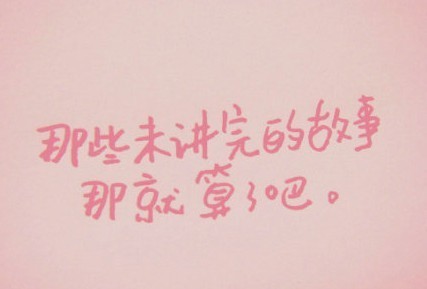 那些未讲完的故事
那就算了吧。